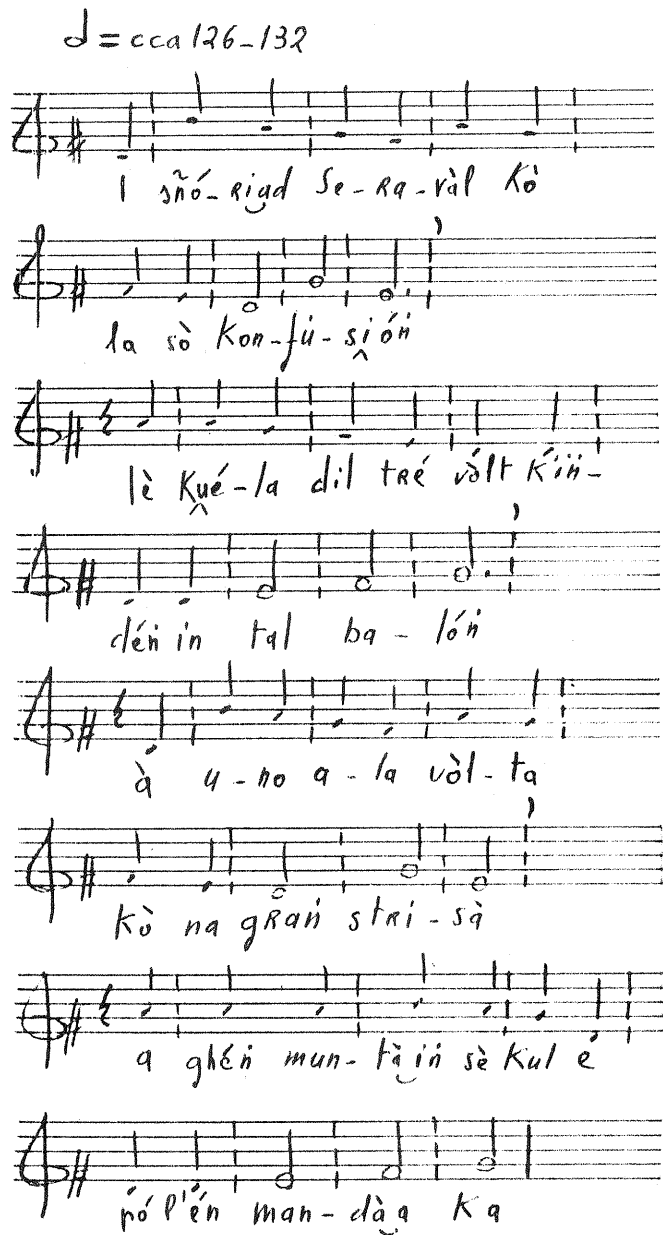 𝅗𝅥 = cca 126-132
I sñó-Riad Se-Ra-vàl Kò
la sò Kon-fu-sióṅ
lè Kué-la dil tRé vòlt Kiṅ-
déṅ iṅ tal ba-lóṅ
à u-no a-la vòl-ta
Kò na gRaṅ stRi-sà
a ghéṅ mun-tà iṅ sè Kul é
pó l'éṅ man-dàa Ka